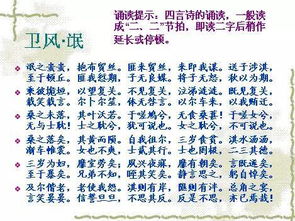 诵读提示：四言诗的诵读，一般读
成“二、二”节拍，即读二字后稍作
延长或停顿。
卫风·氓
氓之蚩蚩，抱布贸丝。匪来贸丝，来即我谋。送子涉淇，
至于顿丘。匪我愆期，子无良媒。将子无怒，秋以为期。
乘彼垝垣，以望复关。不见复关，泣涕涟涟。既见复关，
载笑载言。尔卜尔筮，体无咎言。以尔车来，以我贿迁。
桑之未落，其叶沃若。于嗟鸠兮，无食桑葚！于嗟女兮，
无与士耽！士之耽兮，犹可说也。女之耽兮，不可说也。
桑之落矣，其黄而陨。自我徂尔，三岁食贫。淇水汤汤，
渐车帷裳。女也不爽，士贰其行。士也罔极，二三其德。
三岁为妇，靡室劳矣；夙兴夜寐，靡有朝矣。言既遂矣，
至于暴矣。兄弟不知，咥其笑矣。静言思之，躬自悼矣。
及尔偕老，老使我怨。淇则有岸，隰则有泮。总角之宴，
言笑晏晏。信誓旦旦，不思其反。反是不思，亦已焉哉！